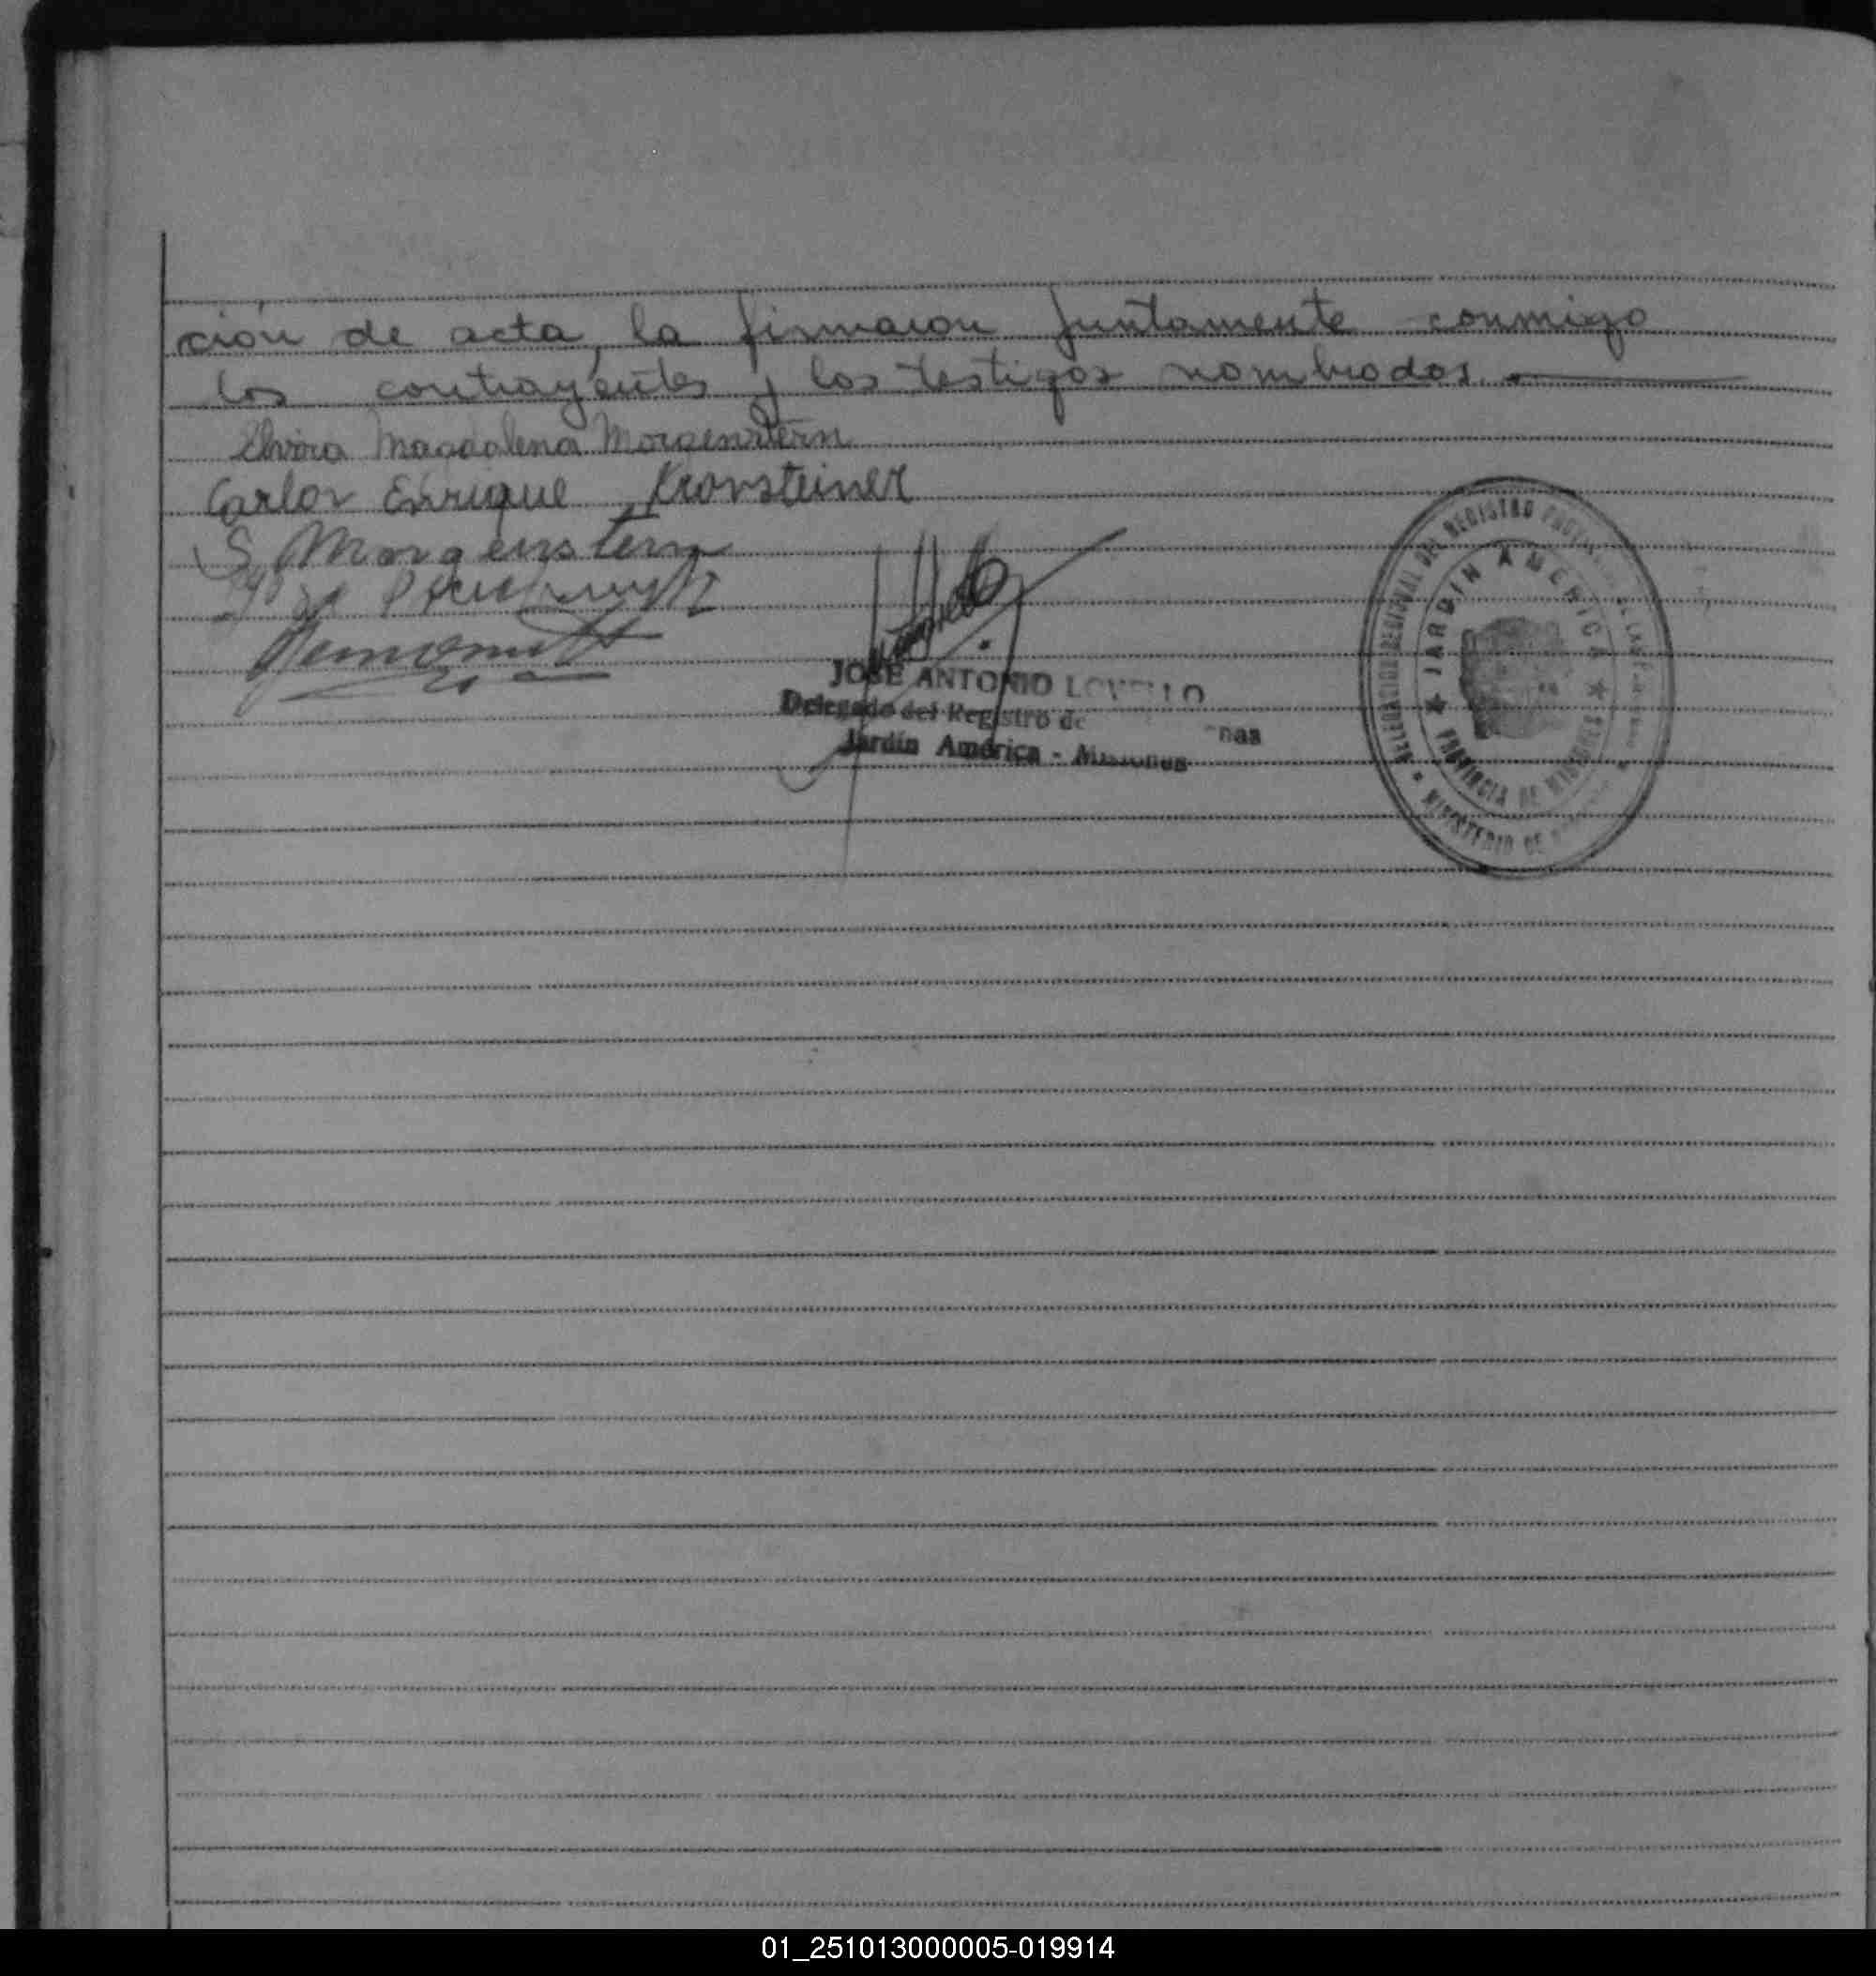 ción de acta, la firmaron juntamente conmigo
los contrayentes y los testigos nombrados.
Elvira Magdalena Morgenstern
Carlos Enrique Kronsteiner
S. Morgenstern
JOSE ANTONIO LOVELLO
Delegado del Registro de
Jardín América - Misiones
DELEGACION REGIONAL DEL REGISTRO
JARDIN AMERICA
PROVINCIA DE MISIONES
MINISTERIO DE
01_251013000005-019914